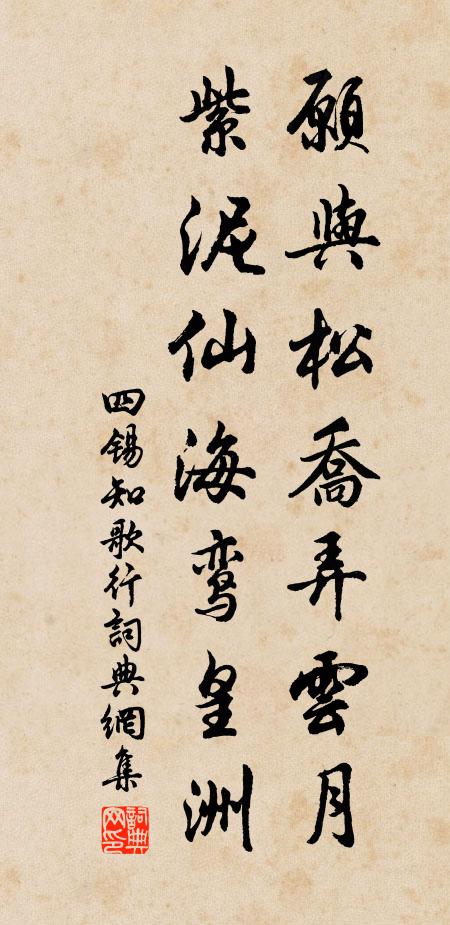 願與松喬弄雲月
紫泥仙海鸾皇洲
四锡知歌行詞典網集
詞典网印